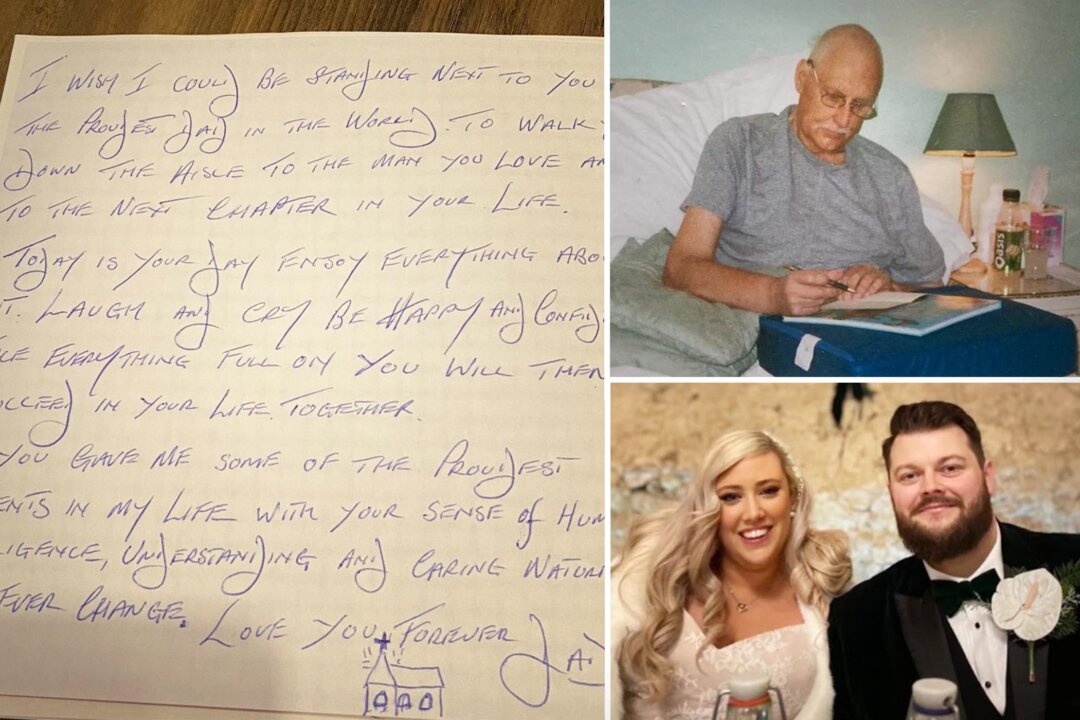 I WISH I COULD BE STANDING NEXT TO YOU
THE PROUDEST DAD IN THE WORLD. TO WALK
DOWN THE AISLE TO THE MAN YOU LOVE AN
TO THE NEXT CHAPTER IN YOUR LIFE.
TODAY IS YOUR DAY ENJOY EVERYTHING ABO
T. LAUGH AND CRY BE HAPPY AND CONFID
KE EVERYTHING FULL ON YOU WILL THEN
UCCEED IN YOUR LIFE TOGETHER.
YOU GAVE ME SOME OF THE PROUDEST
ENTS IN MY LIFE WITH YOUR SENSE of HUM
LIGENCE, UNDERSTANDING AND CARING NATUR
EVER CHANGE. LOVE YOU FOREVER DAD
OASIS